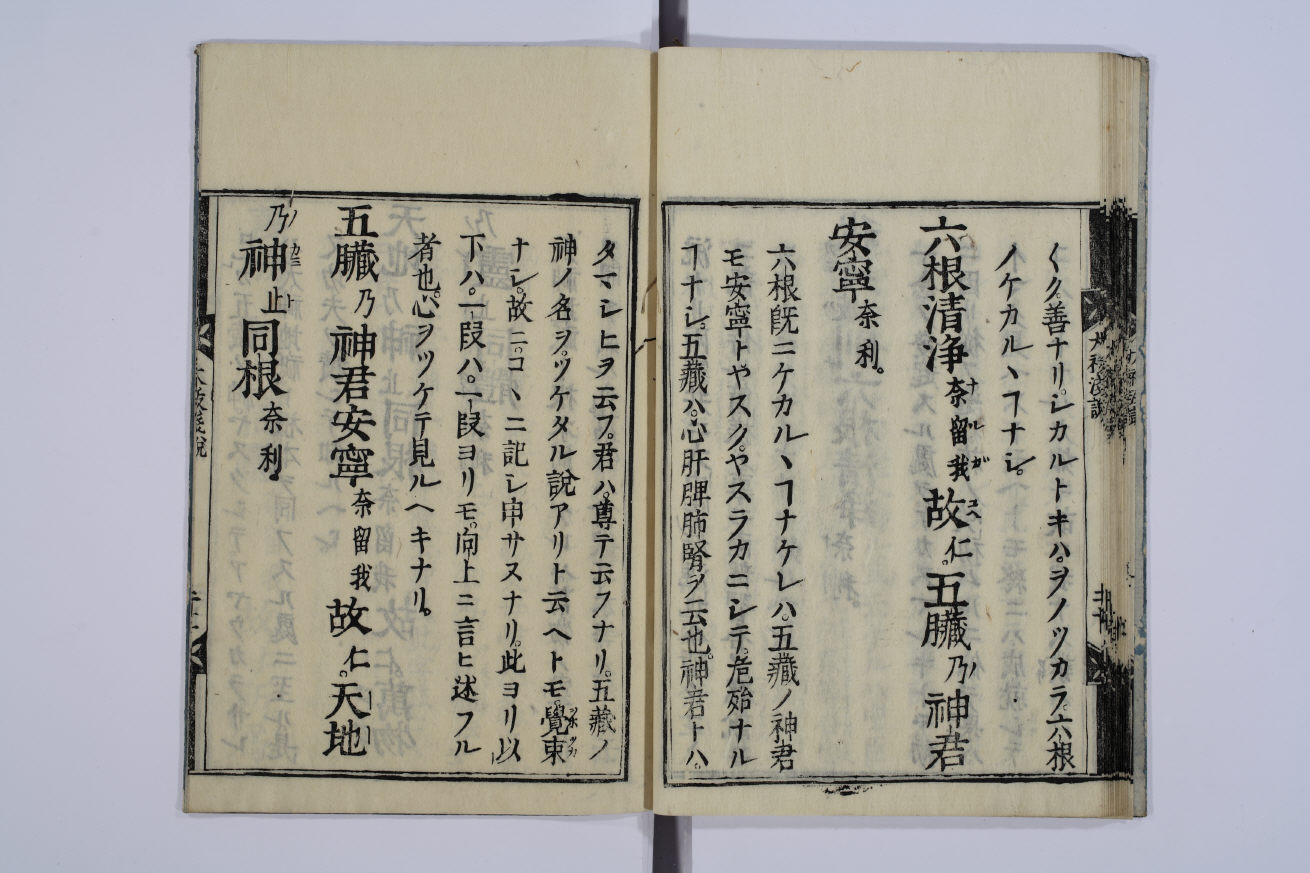 ク久善ナリ。シカルトキハ。ヲノツカラ。六根
ノケカルヽヿナシ。
六根清浄奈留我故仁。五臓乃神君
安寧奈利。
六根既ニケカルヽヿナケレハ。五藏ノ神君
モ安寧トヤスク。ヤスラカニシテ。危殆ナル
ヿナシ。五藏ハ。心肝脾肺腎ヲ云也。神君トハ。
タマシヒヲ云フ。君ハ。尊テ云フナリ。五藏ノ
神ノ名ヲ。ツケタル說アリト云ヘトモ。覺束
ナシ。故ニ。コヽニ記シ申サヌナリ。此ヨリ以
下ハ。一段ハ。一段ヨリモ。向上ニ言ヒ述フル
者也。心ヲツケテ見ルヘキナリ。
五臓乃神君安寧奈留我故仁。天地
乃神止同根奈利。